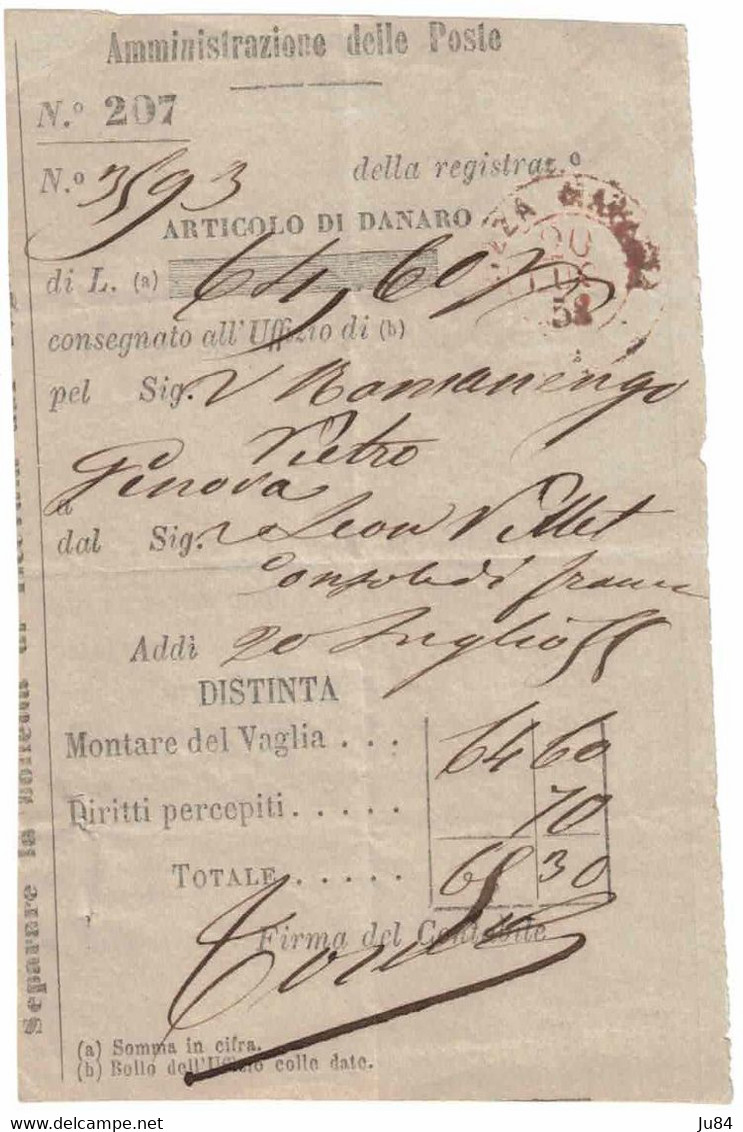 Amministrazione delle Poste
N.º 207
N.º 3593 della registraz.º
ARTICOLO DI DANARO
di L. (a) 64,60
20
LUG
58
consegnato all'Uffizio di (b)
pel Sig. Romanengo
Pietro
a Genova
dal Sig. Leon Pillet
Console di
Addì 20 luglio 58
DISTINTA
Montare del Vaglia . . . 64 60
Diritti percepiti . . . . . 70
TOTALE . . . . . 65 30
Firma del Contabile
(a) Somma in cifra.
(b) Bollo dell'Uffizio colle date.
Separare la
Ju84